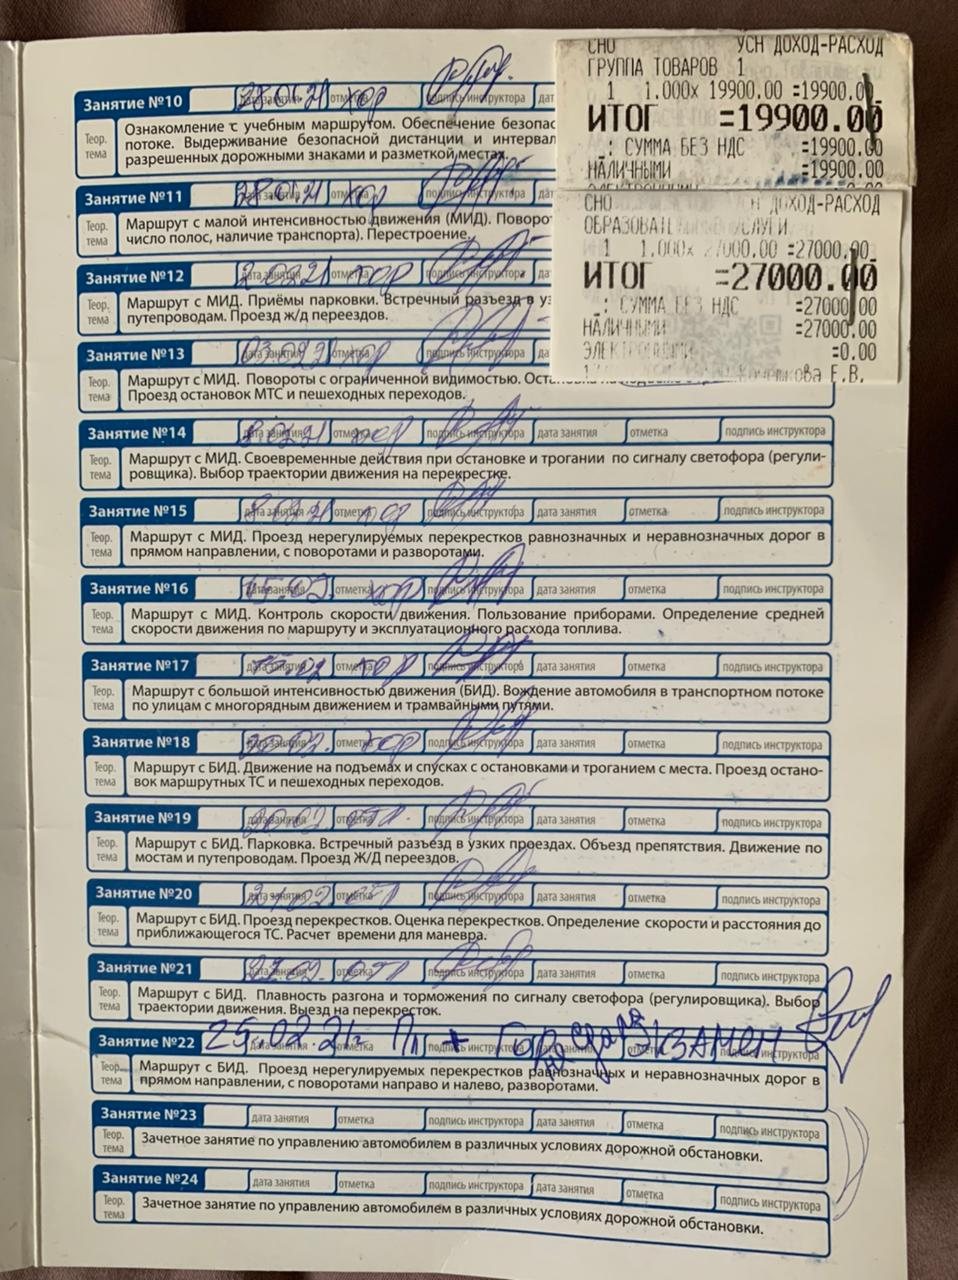 СНО УСН ДОХОД-РАСХОД
ГРУППА ТОВАРОВ 1
1 1.000х 19900.00 =19900.00
ИТОГ =19900.00
.: СУММА БЕЗ НДС =19900.00
НАЛИЧНЫМИ =19900.00
ЭЛЕКТРОННЫМИ =0.00
СНО УСН ДОХОД-РАСХОД
ОБРАЗОВАТ УСЛУГИ
1 1.000х 27000.00 =27000.00
ИТОГ =27000.00
.: СУММА БЕЗ НДС =27000.00
НАЛИЧНЫМИ =27000.00
ЭЛЕКТРОННЫМИ =0.00
Е.В.
Занятие №10 дата занятия отметка подпись инструктора дат
хор
Теор. тема
Ознакомление с учебным маршрутом. Обеспечение безопас
потоке. Выдерживание безопасной дистанции и интервал
разрешенных дорожными знаками и разметкой местах.
Занятие №11 дата занятия отметка подпись инструктора дат
хор
Теор. тема
Маршрут с малой интенсивностью движения (МИД). Поворот
число полос, наличие транспорта). Перестроение.
Занятие №12 дата занятия отметка подпись инструктора дат
хор
Теор. тема
Маршрут с МИД. Приёмы парковки. Встречный разъезд в уз
путепроводам. Проезд ж/д переездов.
Занятие №13 дата занятия отметка подпись инструктора дат
03.02.21 хор
Теор. тема
Маршрут с МИД. Повороты с ограниченной видимостью.
Проезд остановок МТС и пешеходных переходов.
Занятие №14 дата занятия отметка подпись инструктора дата занятия отметка подпись инструктора
8.02.21 хор
Теор. тема
Маршрут с МИД. Своевременные действия при остановке и трогании по сигналу светофора (регули-
ровщика). Выбор траектории движения на перекрестке.
Занятие №15 дата занятия отметка подпись инструктора дата занятия отметка подпись инструктора
8.02.21 хор
Теор. тема
Маршрут с МИД. Проезд нерегулируемых перекрестков равнозначных и неравнозначных дорог в
прямом направлении, с поворотами и разворотами.
Занятие №16 дата занятия отметка подпись инструктора дата занятия отметка подпись инструктора
15.02. хор
Теор. тема
Маршрут с МИД. Контроль скорости движения. Пользование приборами. Определение средней
скорости движения по маршруту и эксплуатационного расхода топлива.
Занятие №17 дата занятия отметка подпись инструктора дата занятия отметка подпись инструктора
15.02 хор
Теор. тема
Маршрут с большой интенсивностью движения (БИД). Вождение автомобиля в транспортном потоке
по улицам с многорядным движением и трамвайными путями.
Занятие №18 дата занятия отметка подпись инструктора дата занятия отметка подпись инструктора
20.02. хор
Теор. тема
Маршрут с БИД. Движение на подъемах и спусках с остановками и троганием с места. Проезд остано-
вок маршрутных ТС и пешеходных переходов.
Занятие №19 дата занятия отметка подпись инструктора дата занятия отметка подпись инструктора
20.02 отл.
Теор. тема
Маршрут с БИД. Парковка. Встречный разъезд в узких проездах. Объезд препятствия. Движение по
мостам и путепроводам. Проезд Ж/Д переездов.
Занятие №20 дата занятия отметка подпись инструктора дата занятия отметка подпись инструктора
21.02 отл
Теор. тема
Маршрут с БИД. Проезд перекрестков. Оценка перекрестков. Определение скорости и расстояния до
приближающегося ТС. Расчет времени для маневра.
Занятие №21 дата занятия отметка подпись инструктора дата занятия отметка подпись инструктора
отл
Теор. тема
Маршрут с БИД. Плавность разгона и торможения по сигналу светофора (регулировщика). Выбор
траектории движения. Выезд на перекресток.
Занятие №22 дата занятия отметка подпись инструктора дата занятия отметка подпись инструктора
25.02.21г. Пл + ЭКЗАМЕН
Теор. тема
Маршрут с БИД. Проезд нерегулируемых перекрестков равнозначных и неравнозначных дорог в
прямом направлении, с поворотами направо и налево, разворотами.
Занятие №23 дата занятия отметка подпись инструктора дата занятия отметка подпись инструктора
Теор. тема
Зачетное занятие по управлению автомобилем в различных условиях дорожной обстановки.
Занятие №24 дата занятия отметка подпись инструктора дата занятия отметка подпись инструктора
Теор. тема
Зачетное занятие по управлению автомобилем в различных условиях дорожной обстановки.